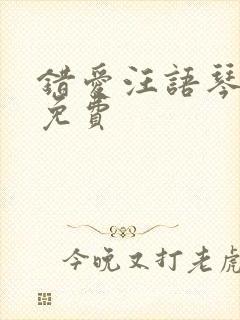 錯愛汪語琴
免費
今晚又打老虎